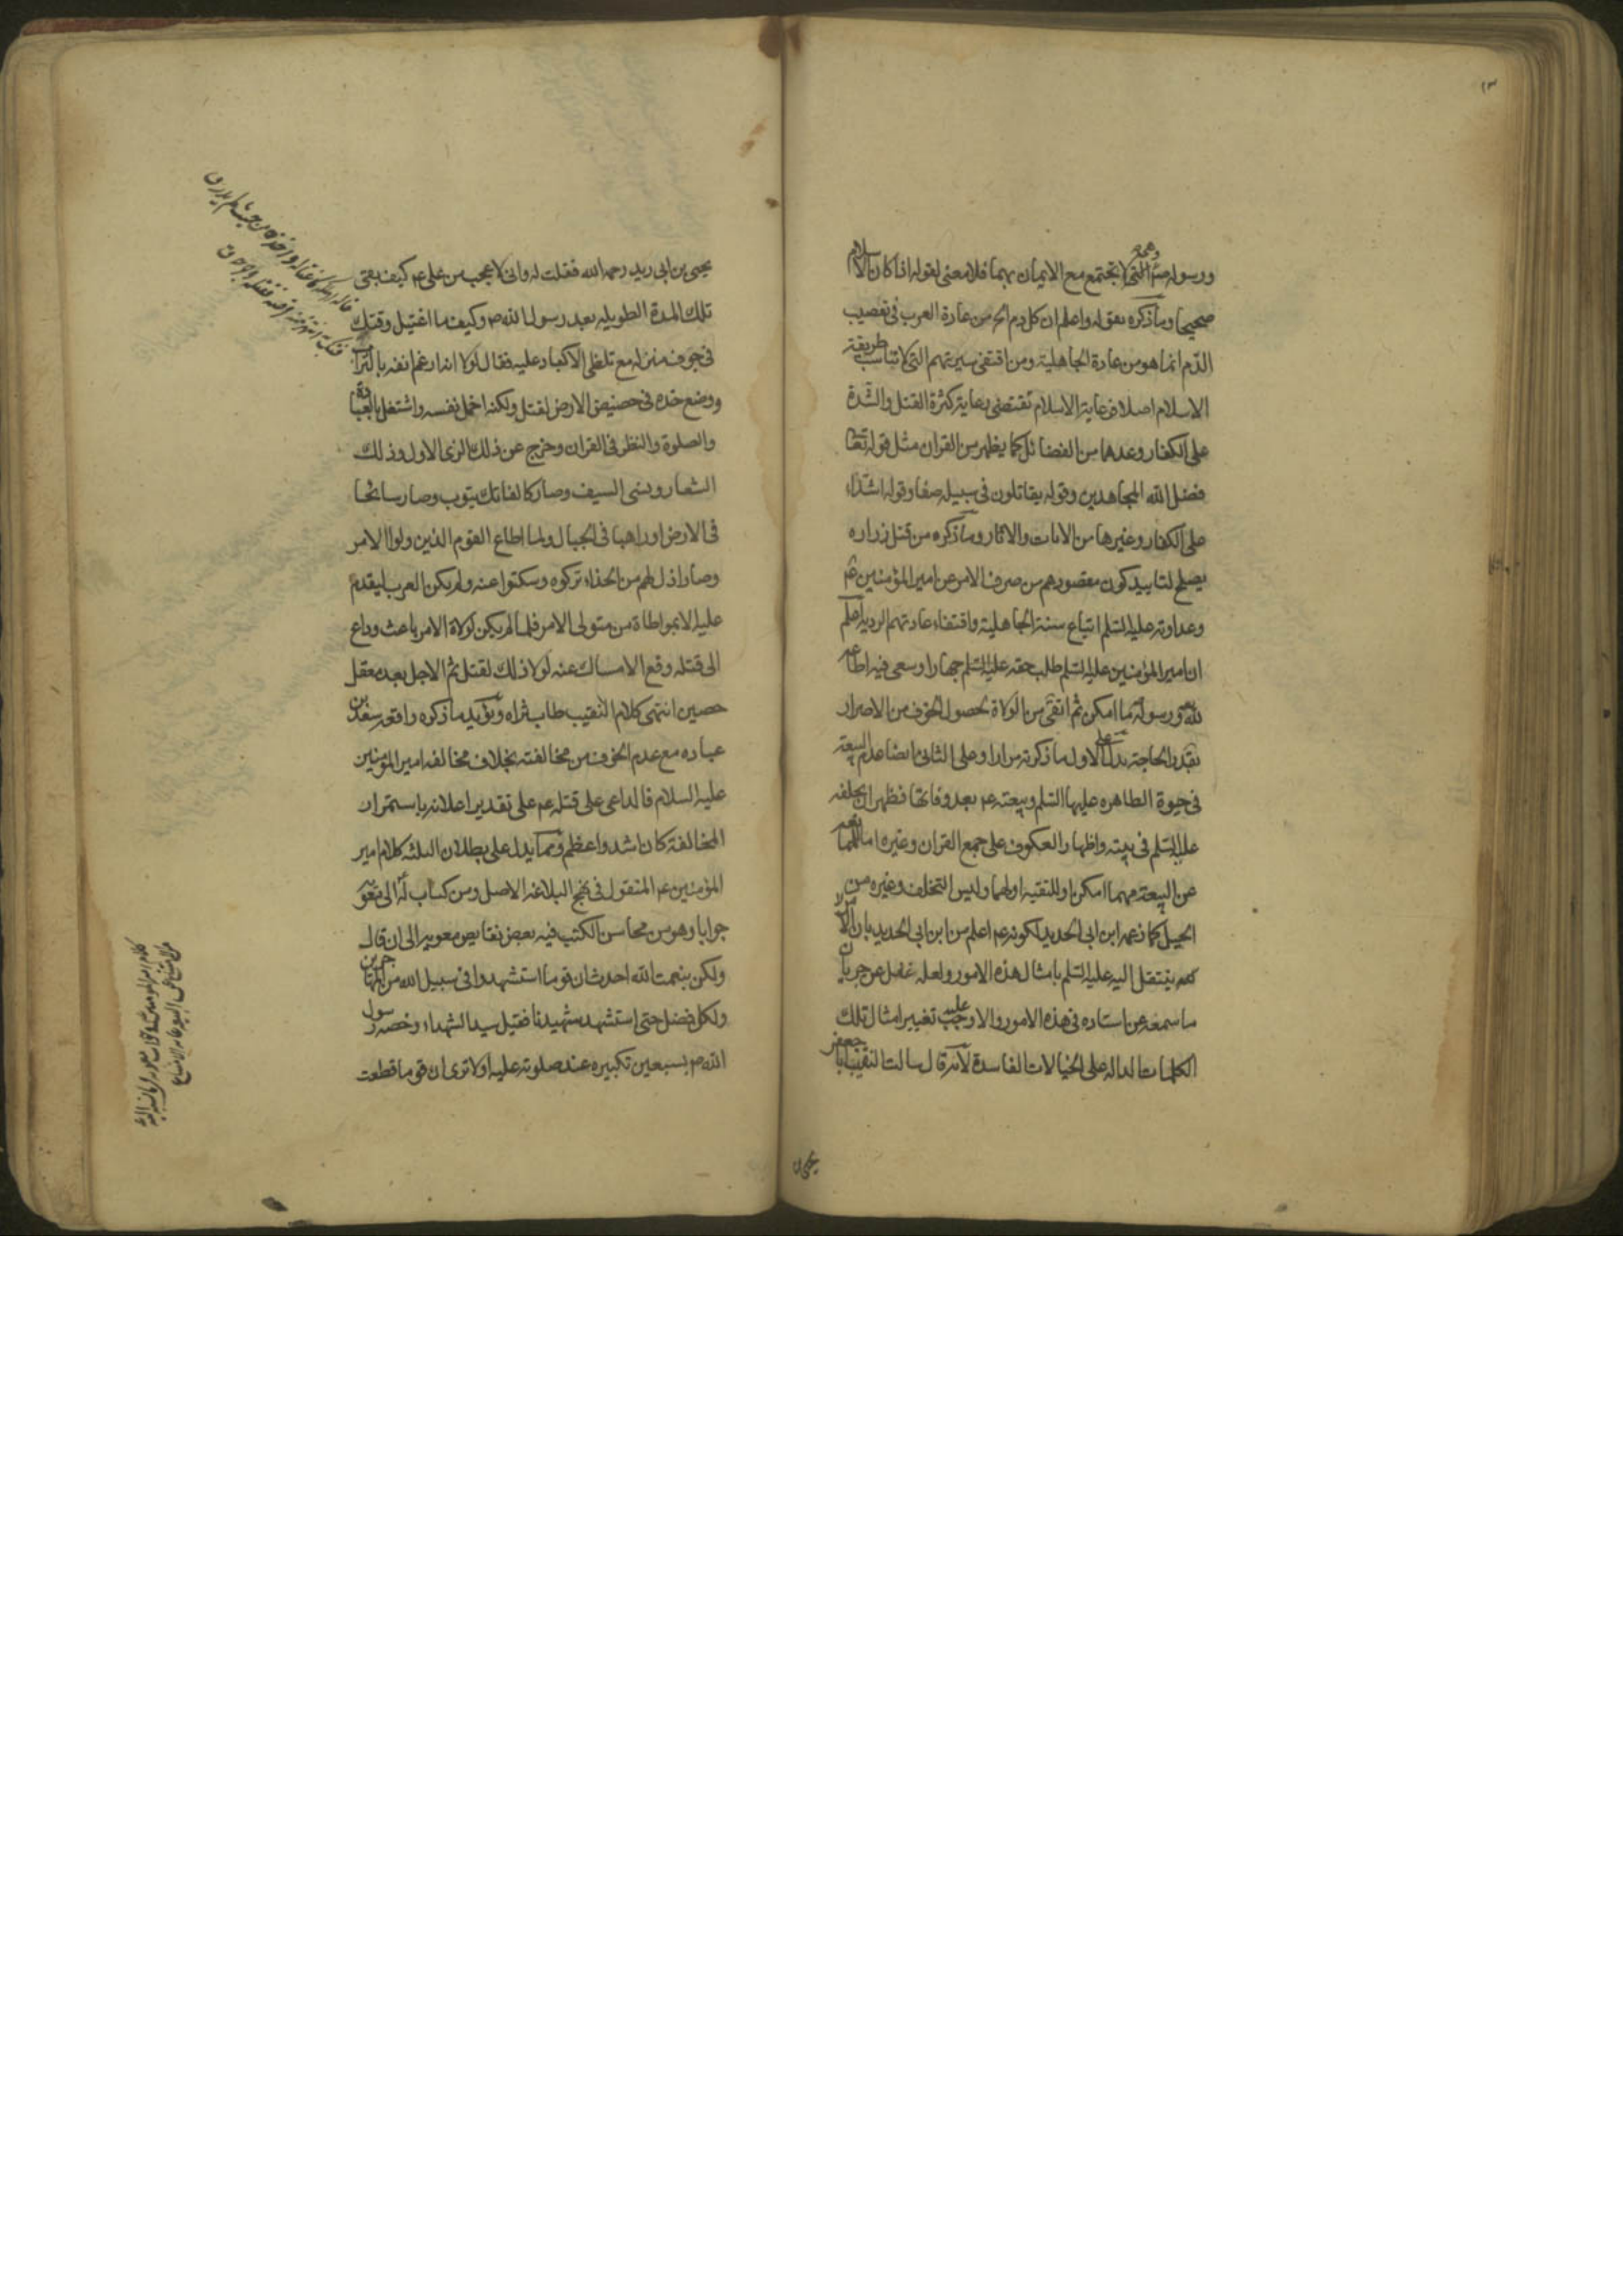 ١٣
ورسوله التى لا يجتمع مع الايمان بهما فلا معنى لقوله اذا كان الاسلام
صحيحا وما ذكره بقوله واعلم ان كل دم الخ من عادة العرب فى تعصيب
الدّم انما هو من عادة الجاهلية ومن اقتفى سيرتهم التى لا تناسب طريقة
الاسلام اصلا فرعاية الاسلام تقتضى رعاية كثرة القتل والشدة
على الكفار وعدها من الفضائل كما يظهر من القران مثل قوله تعا
فضل الله المجاهدين وقوله يقاتلون فى سبيله صفا وقوله اشداء
على الكفار وغيرها من الايات والاثار وما ذكره من قتل زراره
يصلح لتاييد كون مقصودهم من صرف الامر عن امير المؤمنين عم
وعداوته عليه السلم اتباع سنة الجاهلية واقتفاء عادتهم الردية اعلم
ان امير المؤمنين عليه السلم طلب حقه عليه السلم جهارا وسعى فيه اطاعة
لله ورسوله ما امكن ثم اتقى من الولاة بحصول الخوف من الاصرار
بقدر الحاجة يدل على الاول ما ذكرته مرارا وعلى الثانى ايضا عدم البيعة
فى حيوة الطاهره عليها السلم وبيعته عم بعد وفاتها فظهر ان تخلفه
عليه السلم فى بيته واظهار العكوف على جمع القران وغيره اما
عن البيعة مهما امكن او للتقيه او لهما وليس التخلف وغيره من
الحيل كما زعمه ابن ابى الحديد لكونه عم اعلم من ابن ابى الحديد بان الامر
لم ينتقل اليه عليه السلم بامثال هذه الامور ولعله غفل عن جريان
ما سمعه عن استاده فى هذه الامور والا وجب عليه تغيير امثال تلك
الكلمات الداله على الخيالات الفاسدة لانه قال سالت النقيب ابا جعفر
يحيى بن
يحيى بن ابى زيد رحمه الله فقلت له وانى لا عجب من على عم كيف بقى
تلك المدة الطويله بعد رسول الله ص وكيف ما اغتيل وقتك
فى جوف منزله مع تلظى الاكباد عليه فقال لولا انه ارغم انفه بالتراب
ووضع خده فى حضيض الارض لقتل ولكنه اخمل نفسه واشتغل بالعبادة
والصلوة والنظر فى القران وخرج عن ذلك الزى الاول وذلك
الشعار ونسى السيف وصار كالفاتك يتوب وصار سائحا
فى الارض او راهبا فى الجبال ولما اطاع القوم الذين ولوا الامر
وصار اذل لهم من الحذاء تركوه وسكتوا عنه ولم يكن العرب ليقدم
عليه الا بمواطاة من متولى الامر فلما لم يكن لولاة الامر باعث وداع
الى قتله وقع الامساك عنه لولا ذلك لقتل ثم الاجل بعد معقل
حصين انتهى كلام النقيب طاب ثراه ويؤيد ما ذكره واقعه سعد بن
عباده مع عدم الخوف من مخالفته بخلاف مخالفه امير المؤمنين
عليه السلام فالداعى على قتله عم على تقدير اعلانه باستمرار
المخالفة كان اشد واعظم ومما يدل على بطلان الثلثه كلام امير
المؤمنين عم المنقول فى نهج البلاغه الاصل ومن كتاب له الى معوية
جوابا وهو من محاسن الكتب فيه بعض نقايص معويه الى ان قال
ولكن بنعمت الله احدث ان قوما استشهدوا فى سبيل الله من المهاجرين
ولكل فضل حتى استشهد شهيدنا قيل سيد الشهداء وخصه رسول
الله ص بسبعين تكبيره عند صلوته عليه اولا ترى ان قوما قطعت